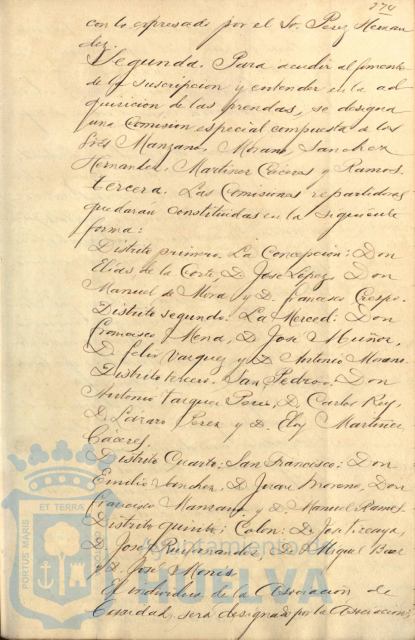 274
con lo expresado por el Sr. Perez Hernan
dez.
Segunda. Para acudir al fomento
de la suscripcion y entender en la ad
quisicion de las prendas, se designa
una Comision especial compuesta de los
Sres Manzano, Moreno, Sanchez
Hernandez, Martinez Caceres y Ramos.
Tercera. Las Comisiones repartidoras
quedaran constituidas en la siguiente
forma:
Distrito primero. La Concepcion: Don
Elias de la Corte, D. José Lopez Don
Manuel de Mora y D. Francisco Crespo.
Distrito segundo. La Merced: Don
Francisco Mena, D. José Muñoz,
D. Felix Vazquez y D. Antonio Moreno
Distrito tercero. San Pedro: Don
Antonio Vazquez Perez, D. Carlos Rey,
D. Lázaro Perez y D. Eloy Martinez
Caceres.
Distrito Cuarto: San Francisco: Don
Emilio Sanchez, D. Juan Moreno, Don
Francisco Manzano y D. Manuel Ramos.
Distrito quinto: Colon: D.
D. José D. Miguel
y D. José
El individuo de la Asociacion de
Caridad, será designado por la Asociacion;
PORTUS MARIS ET TERRAE
Ayuntamiento de
HUELVA